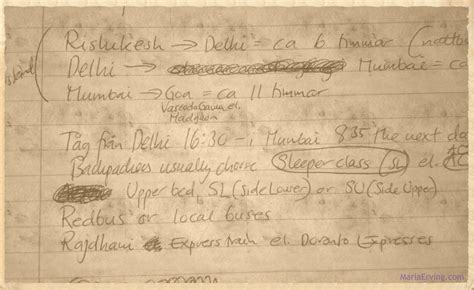 Rishikesh → Delhi = ca 6 timmar
Delhi → Mumbai = ca
Mumbai → Goa = ca 11 timmar
Vasco da Gama el.
Madghan
Tåg från Delhi 16:30 - i Mumbai 835 the next da
Backpackers usually choose Sleeper class (SL) el. AC
Upper bed, SL (Side Lower) or SU (Side Upper)
Redbus or local buses
Rajdhani Express och el. Doranto Expresses
MariaErving.com